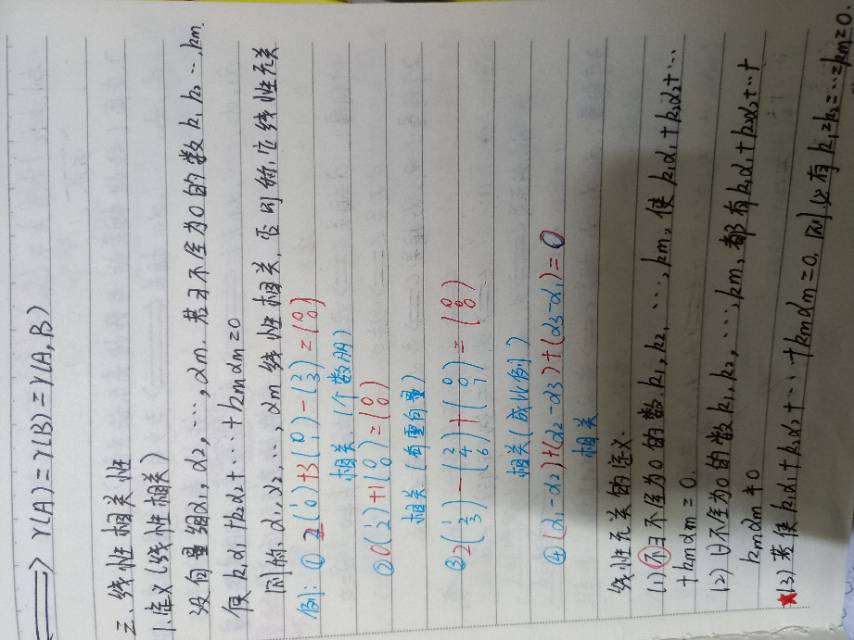 ⟹ r(A)=r(B)=r(A,B)
三、线性相关性
1.定义(线性相关)
设向量组α1,α2,…,αm.若∃不全为0的数k1,k2…,km.
使k1α1+k2α2+…+kmαm=0
则称α1,α2,…,αm线性相关,否则称它线性无关
例:①2(1 0)+3(0 1)-(2 3)=(0 0)
相关.(个数 )
②0(1 2)+1(0 0)=(0 0)
相关.(有零向量)
③2(1 2 3)-(2 4 6)+(0 0)=(0 0)
相关(成比例)
④(α1-α2)+(α2-α3)+(α3-α1)=0
相关
线性无关的定义.
(1)不∃不全为0的数k1,k2,…,km,使k1α1+k2α2+…
+kmαm=0.
(2)∀不全为0的数k1,k2,…,km,都有k1α1+k2α2+…+
kmαm≠0
★(3)若使k1α1+k2α2+…+kmαm=0,则必有k1=k2=…=km=0.